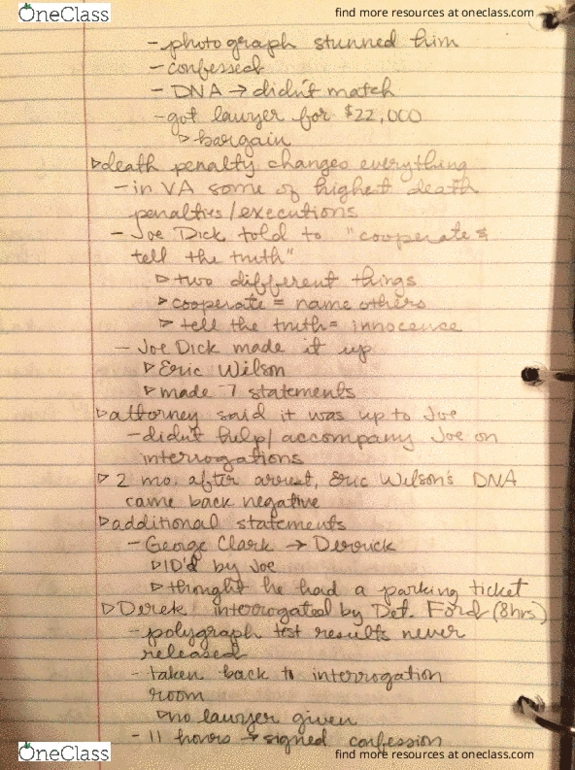 OneClass
find more resources at oneclass.com
- photograph stunned him
- confessed
- DNA → didn't match
- got lawyer for $22,000
▹ bargain
▹death penalty changes everything
- in VA some of highest death
penalties/executions
- Joe Dick told to "cooperate &
tell the truth"
▹ two different things
▹ cooperate = name others
▹ tell the truth = innocence
- Joe Dick made it up
▹ Eric Wilson
▹ made 7 statements
▹attorney said it was up to Joe
- didn't help/accompany Joe on
interrogations
▹ 2 mo. after arrest, Eric Wilson's DNA
came back negative
▹additional statements
- George Clark → Derrick
▹ID'd by Joe
▹thought he had a parking ticket
▹Derek interrogated by Det. Ford (8hrs)
- polygraph test results never
released
- taken back to interrogation
room
▹no lawyer given
- 11 hours → signed confession
OneClass
find more resources at oneclass.com